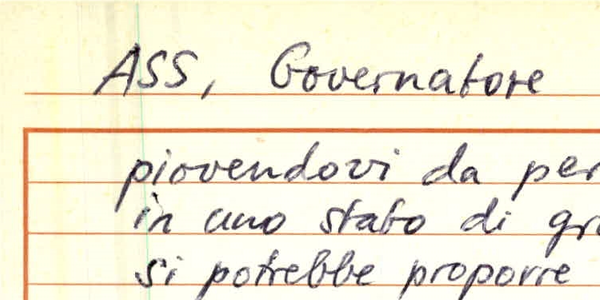 ASS, Governatore
piovendovi da per
in uno stato di gra
si potrebbe proporre